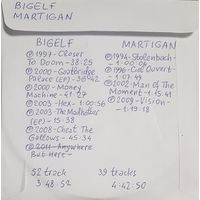 BIGELF
MARTIGAN
BIGELF
Ⓟ1997-Closer
To Doom-38:25
Ⓟ2000-Goatbridge
Palace (EP)-36:42
Ⓟ2000-Money
Machine-41:27
Ⓟ2003-Hex-1:00:56
Ⓟ2003-The Madhatter
(EP)-15:38
Ⓟ2008-Cheat The
Gallows-45:34
Ⓟ2011-Anywhere
But Here-
52 track
3:48:52
MARTIGAN
Ⓟ1994-Stolzenbach-
1:00:04
Ⓟ1996-Ciel Ouvert-
1:07:49
Ⓟ2002-Man Of The
Moment-1:15:41
Ⓟ2009-Vision-
1:19:18
39 tracks
4:42:50